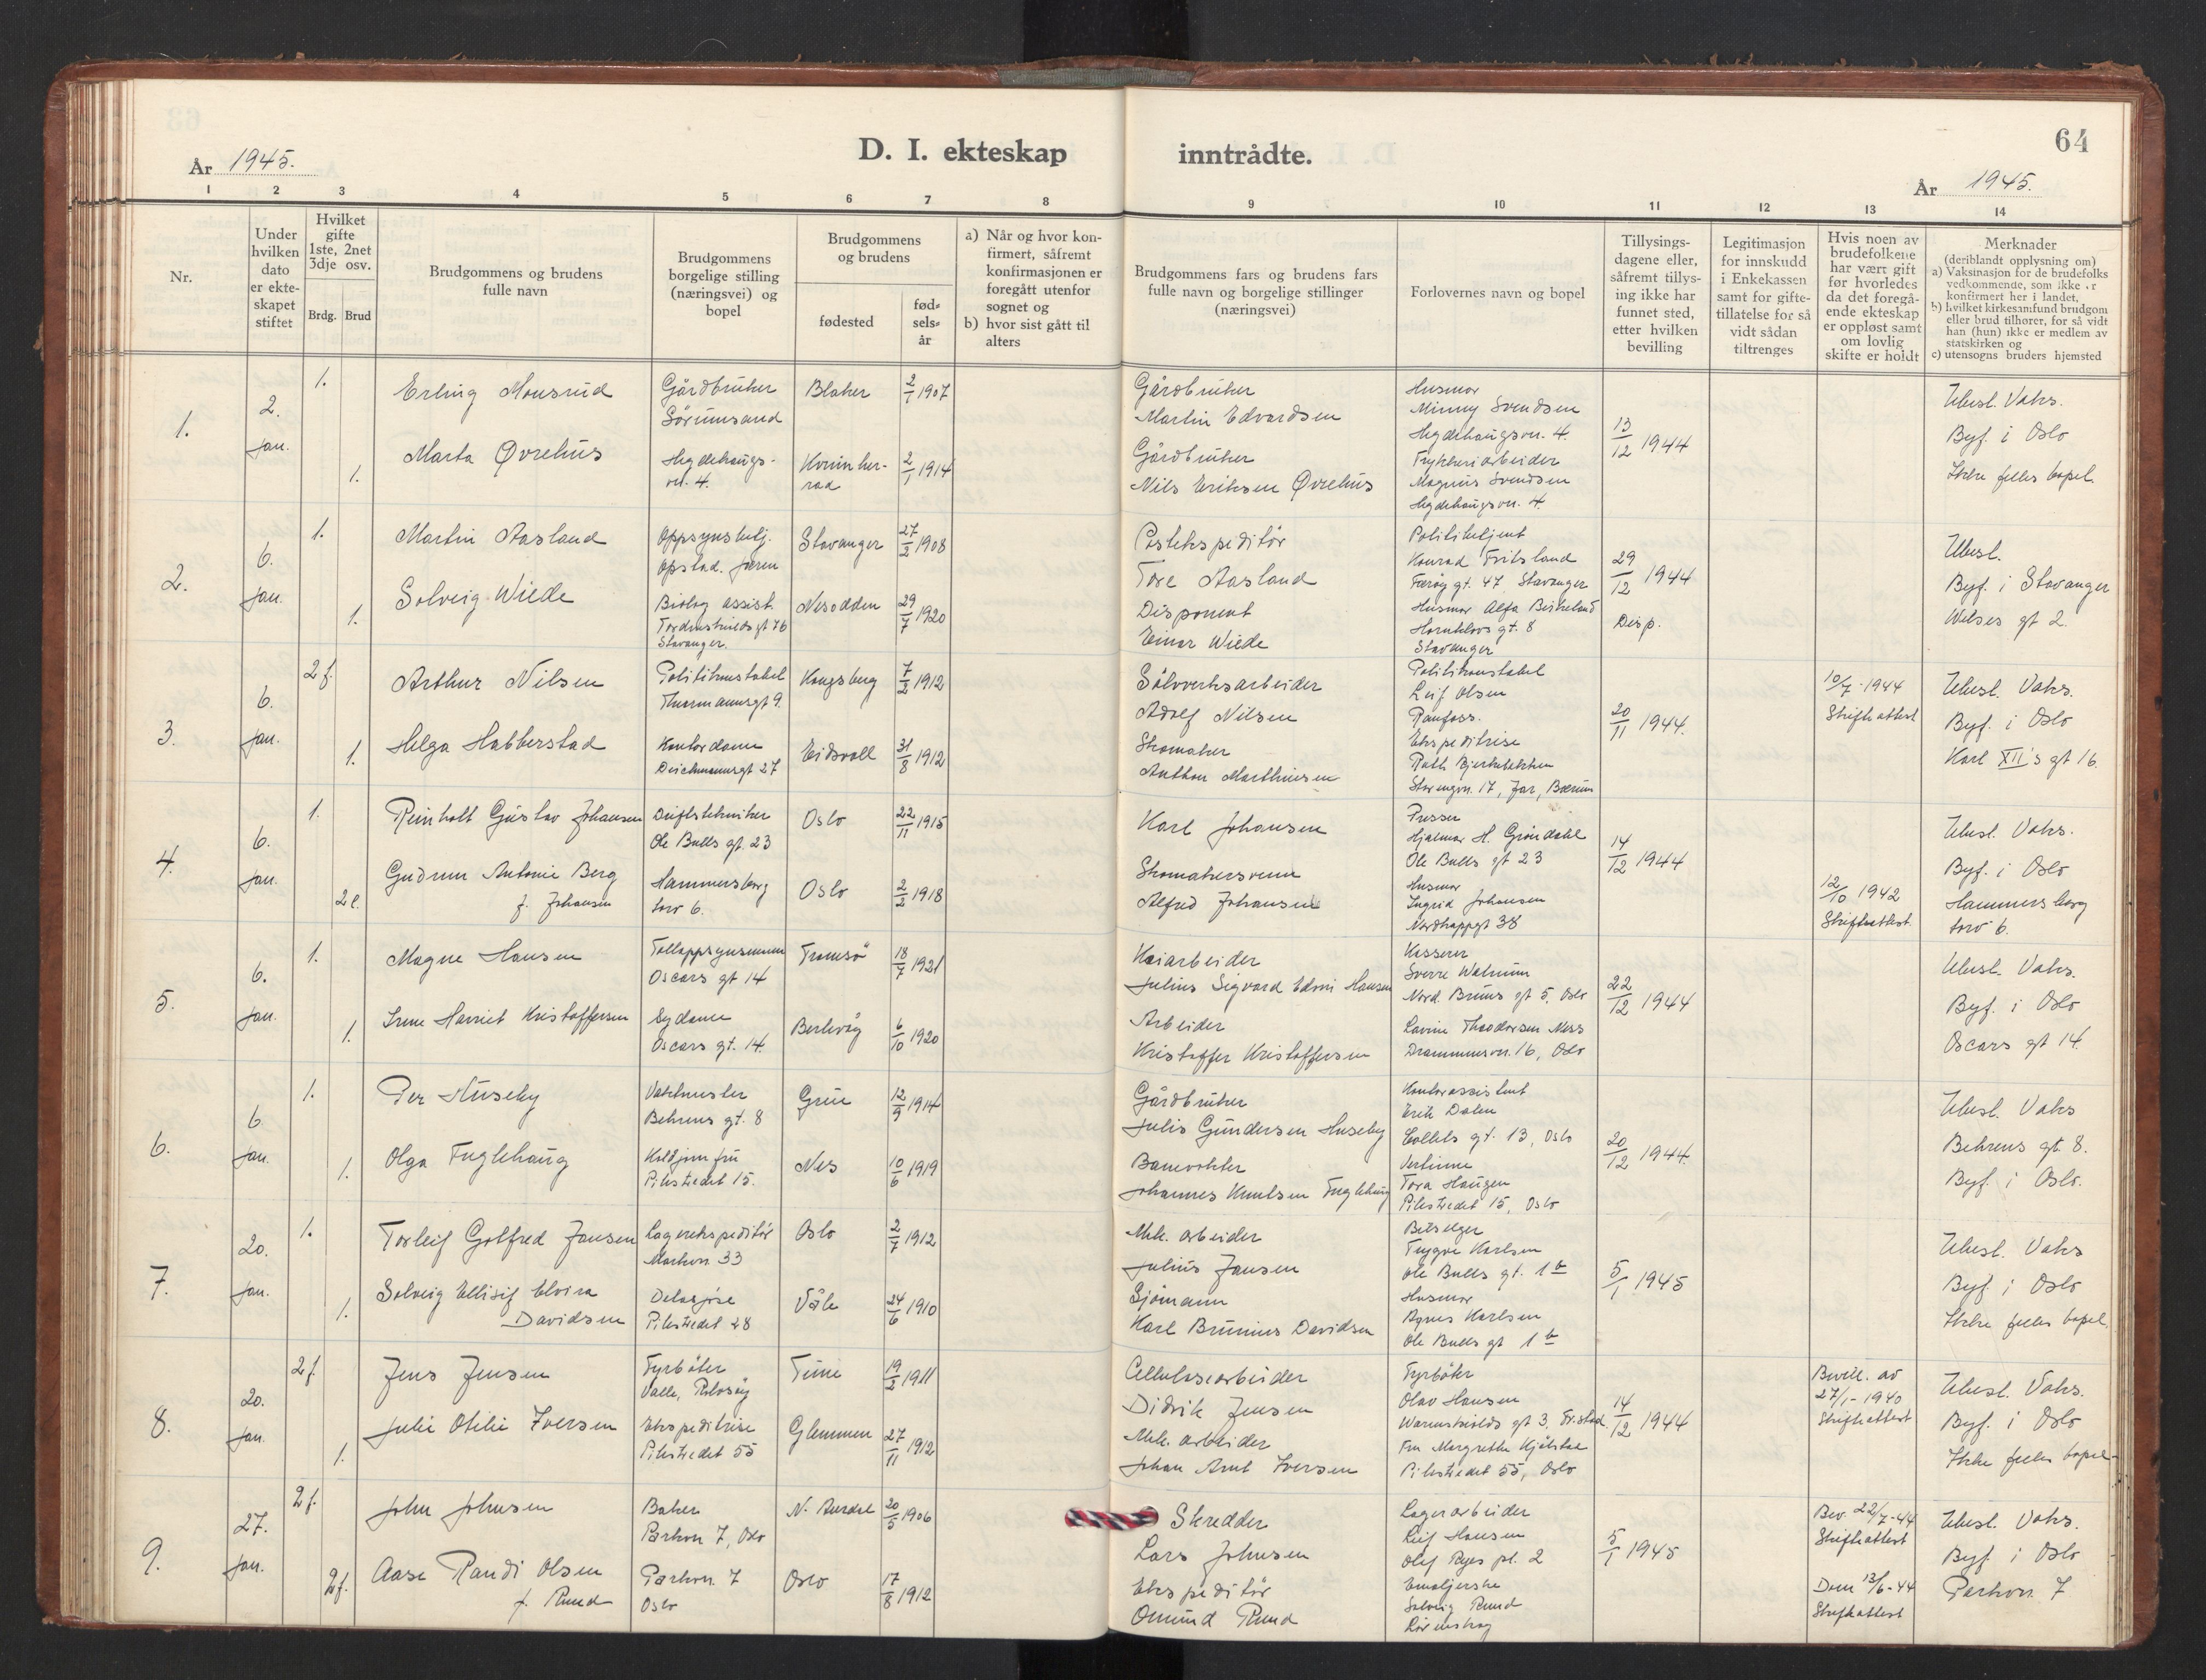 64
År 1945.
D. I. ekteskap inntrådte.
År 1945.
1 2 3 4 5 6 7 8 9 10 11 12 13 14
Nr.
Under hvilken dato er ekteskapet stiftet
Hvilket gifte 1ste, 2net 3dje osv.
Brdg. Brud
Brudgommens og brudens fulle navn
Brudgommens borgelige stilling (næringsvei) og bopel
Brudgommens og brudens
fødested
fødselsår
a) Når og hvor konfirmert, såfremt konfirmasjonen er foregått utenfor sognet og
b) hvor sist gått til alters
Brudgommens fars og brudens fars fulle navn og borgelige stillinger (næringsvei)
Forlovernes navn og bopel
Tillysingsdagene eller, såfremt tillysing ikke har funnet sted, etter hvilken bevilling
Legitimasjon for innskudd i Enkekassen samt for giftetillatelse for så vidt sådan tiltrenges
Hvis noen av brudefolkene har vært gift før hvorledes da det foregående ekteskap er oppløst samt om lovlig skifte er holdt
Merknader
(deriblandt opplysning om)
a) Vaksinasjon for de brudefolks vedkommende, som ikke er konfirmert her i landet,
b) hvilket kirkesamfund brudgom eller brud tilhører, for så vidt han (hun) ikke er medlem av statskirken og
c) utensogns bruders hjemsted
1.
2. Jan.
1.
Erling Monsrud
Gårdbruker
Sørumsand
Blaker
2/1 1907
Gårdbruker
Martin Edvardsen
Husmor
Minny Svendsen
Hegdehaugsvn. 4.
13/12 1944
Ubesl. Vaks.
Byf. i Oslo
Ikke felles bopel.
1.
Marta Øvrehus
Hegdehaugs-
vn. 4.
Kvinnher-
rad
2/1 1914
Gårdbruker
Nils Eriksen Øvrehus
Trykkeriarbeider
Magnus Svendsen
Hegdehaugsvn. 4
2.
6. Jan.
1.
Martin Aasland
Oppsynsbetj.
Opstad. Jæren
Stavanger
27/2 1908
Postekspeditør
Tore Aasland
Politibetjent
Konrad Fritsland
Færøy gt. 47 Stavanger
29/12 1944
Disp.
Ubesl.
Byf. i Stavanger
1.
Solveig Wiede
Biolog assist.
Tordenskiolds gt 76
Stavanger.
Nesodden
29/7 1920
Disponent
Einar Wiede
Husmor Alfa Birkeland
Hornklovs gt. 8
Stavanger
gt 2.
3.
6. Jan.
2 f.
Arthur Nilsen
Politikonstabel
Thormannsgt 9.
Kongsberg
7/2 1912
Sølvverksarbeider
Adolf Nilsen
Politikonstabel
Leif Olsen
Raufoss.
20/11 1944.
10/7-1944
Skifteattest
Ubesl. Vaks.
Byf. i Oslo
Karl XII's gt 16.
1.
Helga Habberstad
Kontordame
Deichmannsgt 27
Eidsvoll
31/8 1912
Skomaker
Anthon Marthinsen
Ekspeditrise
Ruth
Storengvn. 17, Jar, Bærum
4.
6. Jan.
1.
Reinholt Gustav Johansen
Driftstekniker
Ole Bulls gt. 23
Oslo
22/11 1915
Karl Johansen
Presser
Hjalmar H. Grøndahl
Ole Bulls gt 23
14/12 1944
Ubesl. Vaks.
Byf. i Oslo
Hammersborg
torv 6.
2 e.
Gudrun Antonie Berg
f. Johansen
Hammersborg
torv 6.
Oslo
2/2 1918
Skomakersvenn
Alfred Johansen
Husmor
Ingrid Johansen
Nordkappgt 38
12/10 1942
Skifteattest.
5.
6. Jan.
1.
Magne Hansen
Tolloppsynsmann
Oscars gt 14
Tromsø
18/7 1921
Kaiarbeider
Julius Sigvard Edvin Hansen
Kasserer
Sverre Walnum
Nord. Bruns gt 5, Oslo
22/12 1944
Ubesl. Vaks.
Byf. i Oslo
Oscars gt 14.
1.
Irene Harriet Kristoffersen
Sydame
Oscars gt. 14.
Berlevåg
6/10 1920
Arbeider
Kristoffer Kristoffersen
Lavine Theodorsen Ness
Drammensvn. 16, Oslo
6.
6 Jan.
1.
Per Huseby
Vaktmester
Behrens gt. 8
Grue
12/9 1914
Gårdbruker
Julis Gundersen Huseby
Kontorassistent
Erik Dalen
Colletts gt. 13, Oslo
20/12 1944.
Ubesl. Vaks
Behrens gt. 8.
Byf. i Oslo.
1.
Olga Fuglehaug
Koldjomfru
Pilestredet 15.
Nes
10/6 1919
Banevokter
Johannes Knutsen Fuglehaug
Vertinne
Tora Haugen
Pilestredet 15, Oslo
7.
20. Jan.
1.
Torleif Gotfred Jansen
Lagerekspeditør
Markvn. 33
Oslo
2/7 1912
Mek. arbeider
Julius Jansen
Trygve Karlsen
Ole Bulls gt. 1 b
5/1 1945
Ubesl. Vaks
Byf. i Oslo
Ikke felles bopel.
1.
Solveig Ellisif Elvira
Davidsen
Pilestredet 28
Våle
24/6 1910
Sjømann
Karl Brunius Davidsen
Husmor
Agnes Karlsen
Ole Bulls gt 1 b
8.
20. Jan.
2 f.
Jens Jensen
Fyrbøter
Valle, Rolvsøy
Tune
19/2 1911
Cellulosearbeider
Didrik Jensen
Fyrbøter
Olav Hansen
gt 3, Fr.stad.
14/12 1944
Bevill. av
27/1-1940
Skifteattest
Ubesl. Vaks.
Byf. i Oslo
Ikke felles bopel.
1.
Julie Otilie Iversen
Ekspeditrise
Pilestredet 55
Glemmen
27/11 1912
Mek. arbeider
Johan Arnt Iversen
Fru Margrethe Kjølstad
Pilestredet 55, Oslo
9.
27. Jan.
2 f.
John Johnsen
Baker
Parkvn 7, Oslo
N. Aurdal
20/5 1906
Skredder
Lars Johnsen
Lagerarbeider
Leif Hansen
Olaf Ryes pl. 2
5/1 1945
Bev. 22/7-44
Skifteattest
Ubesl. Vaks.
Byf. i Oslo
Parkvn. 7
2 f.
Aase Randi Olsen
f. Ruud
Parkvn. 7
Oslo
Oslo
17/8 1912
Ekspeditør
Omund Ruud
Emaljerske
Solveig Ruud
Lørenskog
Dom 13/6-44
Skifteattest